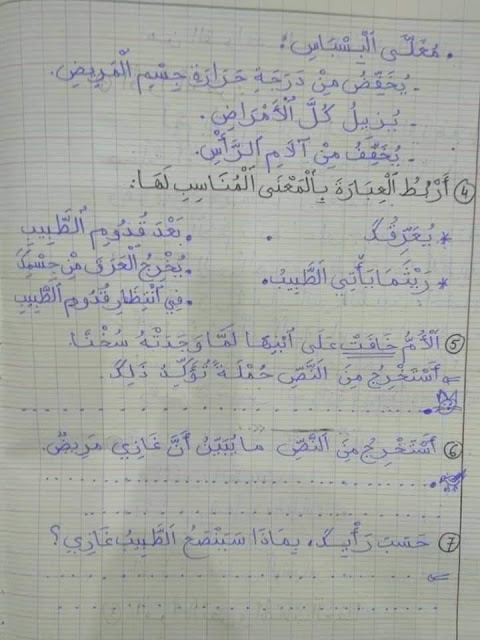 . مُغَلَّى اَلْبِسْبَاسِ :
- يُخَفِّضُ مِنْ دَرَجَةِ حَرَارَةِ جِسْمِ الْمَرِيضِ.
- يُزِيلُ كُلَّ الْأَمْرَاضِ.
- يُخَفِّفُ مِنْ آلَامِ الرَّأْسِ.
④ أَرْبُطُ الْعِبَارَةَ بِالْمَعْنَى الْمُنَاسِبِ لَهَا:
* يُعَرِّقُكَ . . بَعْدَ قُدُومِ الطَّبِيبِ
* رَيْثَمَا يَأْتِي الطَّبِيبُ. . يُخْرِجُ الْعَرَقَ مِنْ جِسْمِكَ
. فِي انْتِظَارِ قُدُومِ الطَّبِيبِ
⑤ اَلْأُمُّ خَافَتْ عَلَى ابْنِهَا لَمَّا وَجَدَتْهُ سُخْنًا.
⇐ أَسْتَخْرِجُ مِنَ النَّصِّ جُمْلَةً تُؤَكِّدُ ذَلِكَ.
⑥ أَسْتَخْرِجُ مِنَ النَّصِّ مَا يُبَيِّنُ أَنَّ غَازِي مَرِيضٌ.
⑦ حَسَبَ رَأْيِكَ، بِمَاذَا سَيَنْصَحُ الطَّبِيبُ غَازِي؟